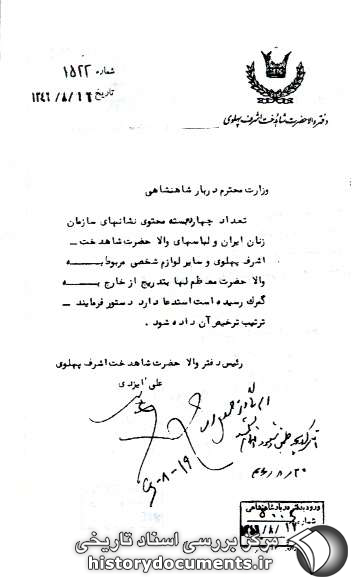 دفتر والاحضرت شاهدخت اشرف پهلوی
شماره ۱۵۲۲
تاریخ ۱۳۴۶/۸/۱۶
وزارت محترم دربار شاهنشاهی
تعداد چهاربسته محتوی نشانهای سازمان
زنان ایران و لباسهای والا حضرت شاهدخت ـ
اشرف پهلوی و سایر لوازم شخصی مربوط به
والا حضرت معظم لها بتدریج از خارج به
گمرک رسیده است استدعا دارد دستور فرمایند ـ
ترتیب ترخیص آن داده شود .
رئیس دفتر والا حضرت شاهدخت اشرف پهلوی
علی ایزدی
۴۶-۸-۱۹
۴۶/۸/۲۰
ورود بدفتر دربار شاهنشاهی
شماره
مرکز بررسی اسناد تاریخی
historydocuments.ir